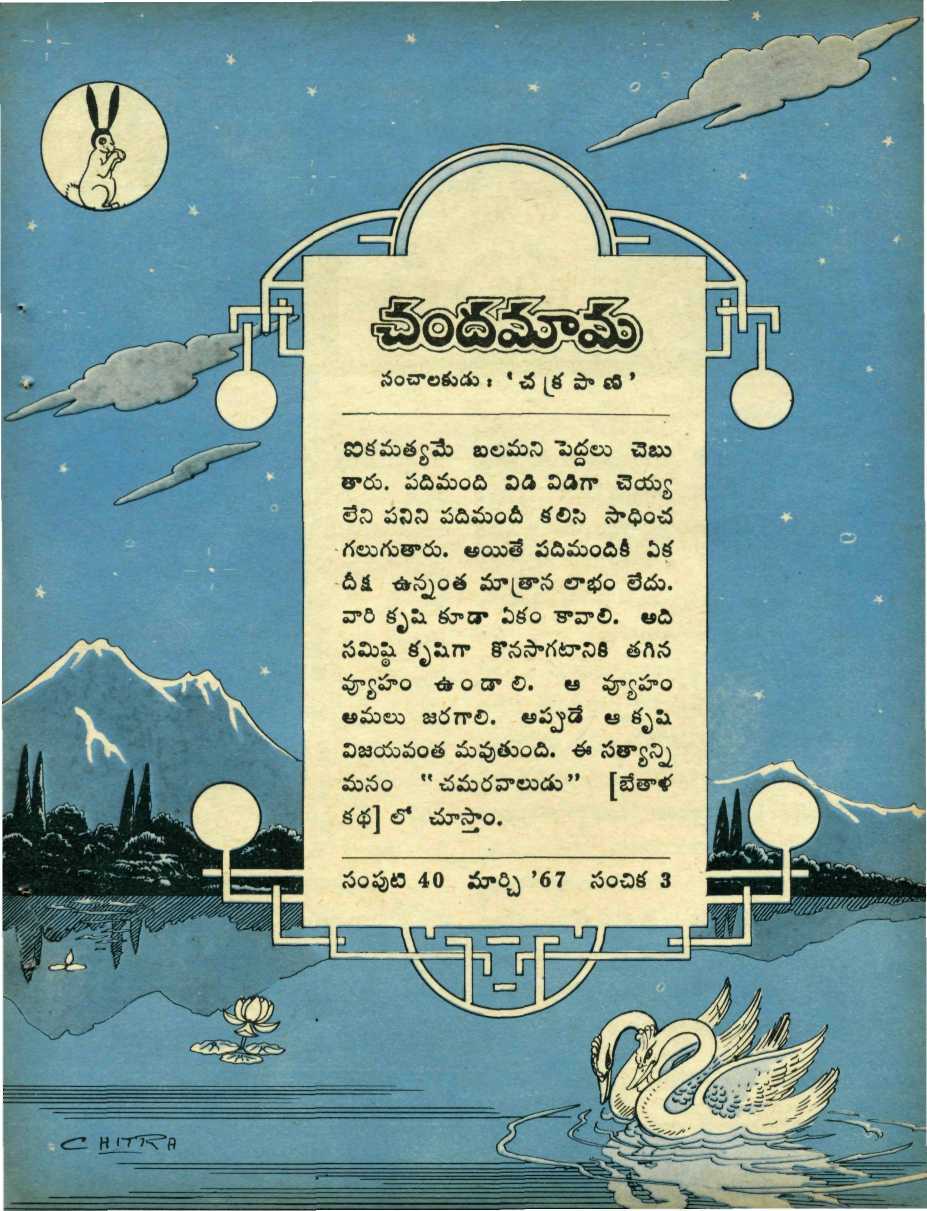 చందమామ
సంచాలకుడు : ‘చక్రపాణి’
ఐకమత్యమే బలమని పెద్దలు చెబు
తారు. పదిమంది విడి విడిగా చెయ్య
లేని పనిని పదిమందీ కలిసి సాధించ
గలుగుతారు. అయితే పదిమందికీ ఏక
దీక్ష ఉన్నంత మాత్రాన లాభం లేదు.
వారి కృషి కూడా ఏకం కావాలి. అది
సమిష్ఠి కృషిగా కొనసాగటానికి తగిన
వ్యూహం ఉండాలి. ఆ వ్యూహం
అమలు జరగాలి. అప్పుడే ఆ కృషి
విజయవంత మవుతుంది. ఈ సత్యాన్ని
మనం “చమరవాలుడు” [బేతాళ
కథ] లో చూస్తాం.
సంపుటి 40 మార్చి '67 సంచిక 3
CHITRA